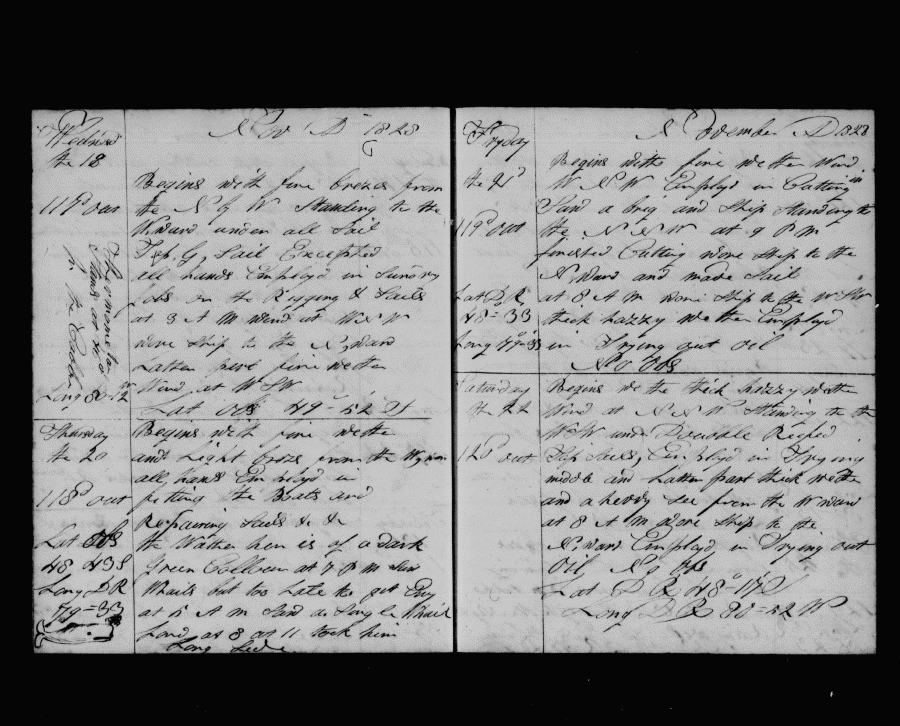 Nov D 1828
Wednsd
the 18
117D out
Thermometer
Stans at 40
in the Cabbin
Long 80-12
Begins with fine brezes from
the N & W Standing to the
W.ward under all Sail
Top G, Sail Excepted
all hands Employd in Sundry
Jobs on the Rigging & Sails
at 3 A M wind at W N W
wore Ship to the N,ward
Latter part fine wether
Wind at W S W
Lat Obs 49-52 S
Thursday
the 20
118D out
Lat Obs
48 43 S
Long D R
79=33
Begins with fine wethe
and Light brezes from the
all hans Employd in
fitting the Boats and
Repairing Sails & &
the Water hen is of a Dark
Green Calleur at 7 P M Saw
Whails but too Late to get Eny
at 5 A M Saw a Singl Whail
Lowd at 8 at 11 took him
Long Side
November D 1828
Fryday
the 21
119D out
Lat D R
48=33
Long 79=33
Begins withe fine wether Wind
W N W Employd in Cutting in
Saw a brig and Ship Standing to
the N N W at 9 P M
finished Cutting wore Ship to the
N,ward and made Sail
at 8 A M wore Ship to the W S W
thick hazzy wether Employd
in Trying out Oil
No Obs
Saturday
the 22
120 out
Begins withe thick hazzy wethe
Wind at N N W Standing to the
W S W under Doubble Reefed
Top Sails, Employd in Trying
middle and Latter part thick wethe
and a hevvy Sea from the W ward
at 8 A M Wore Ship to the
N,ward Employd in Trying out
Oil No Obs
Lat D R 48°-17 S
Long D R 80=52 W